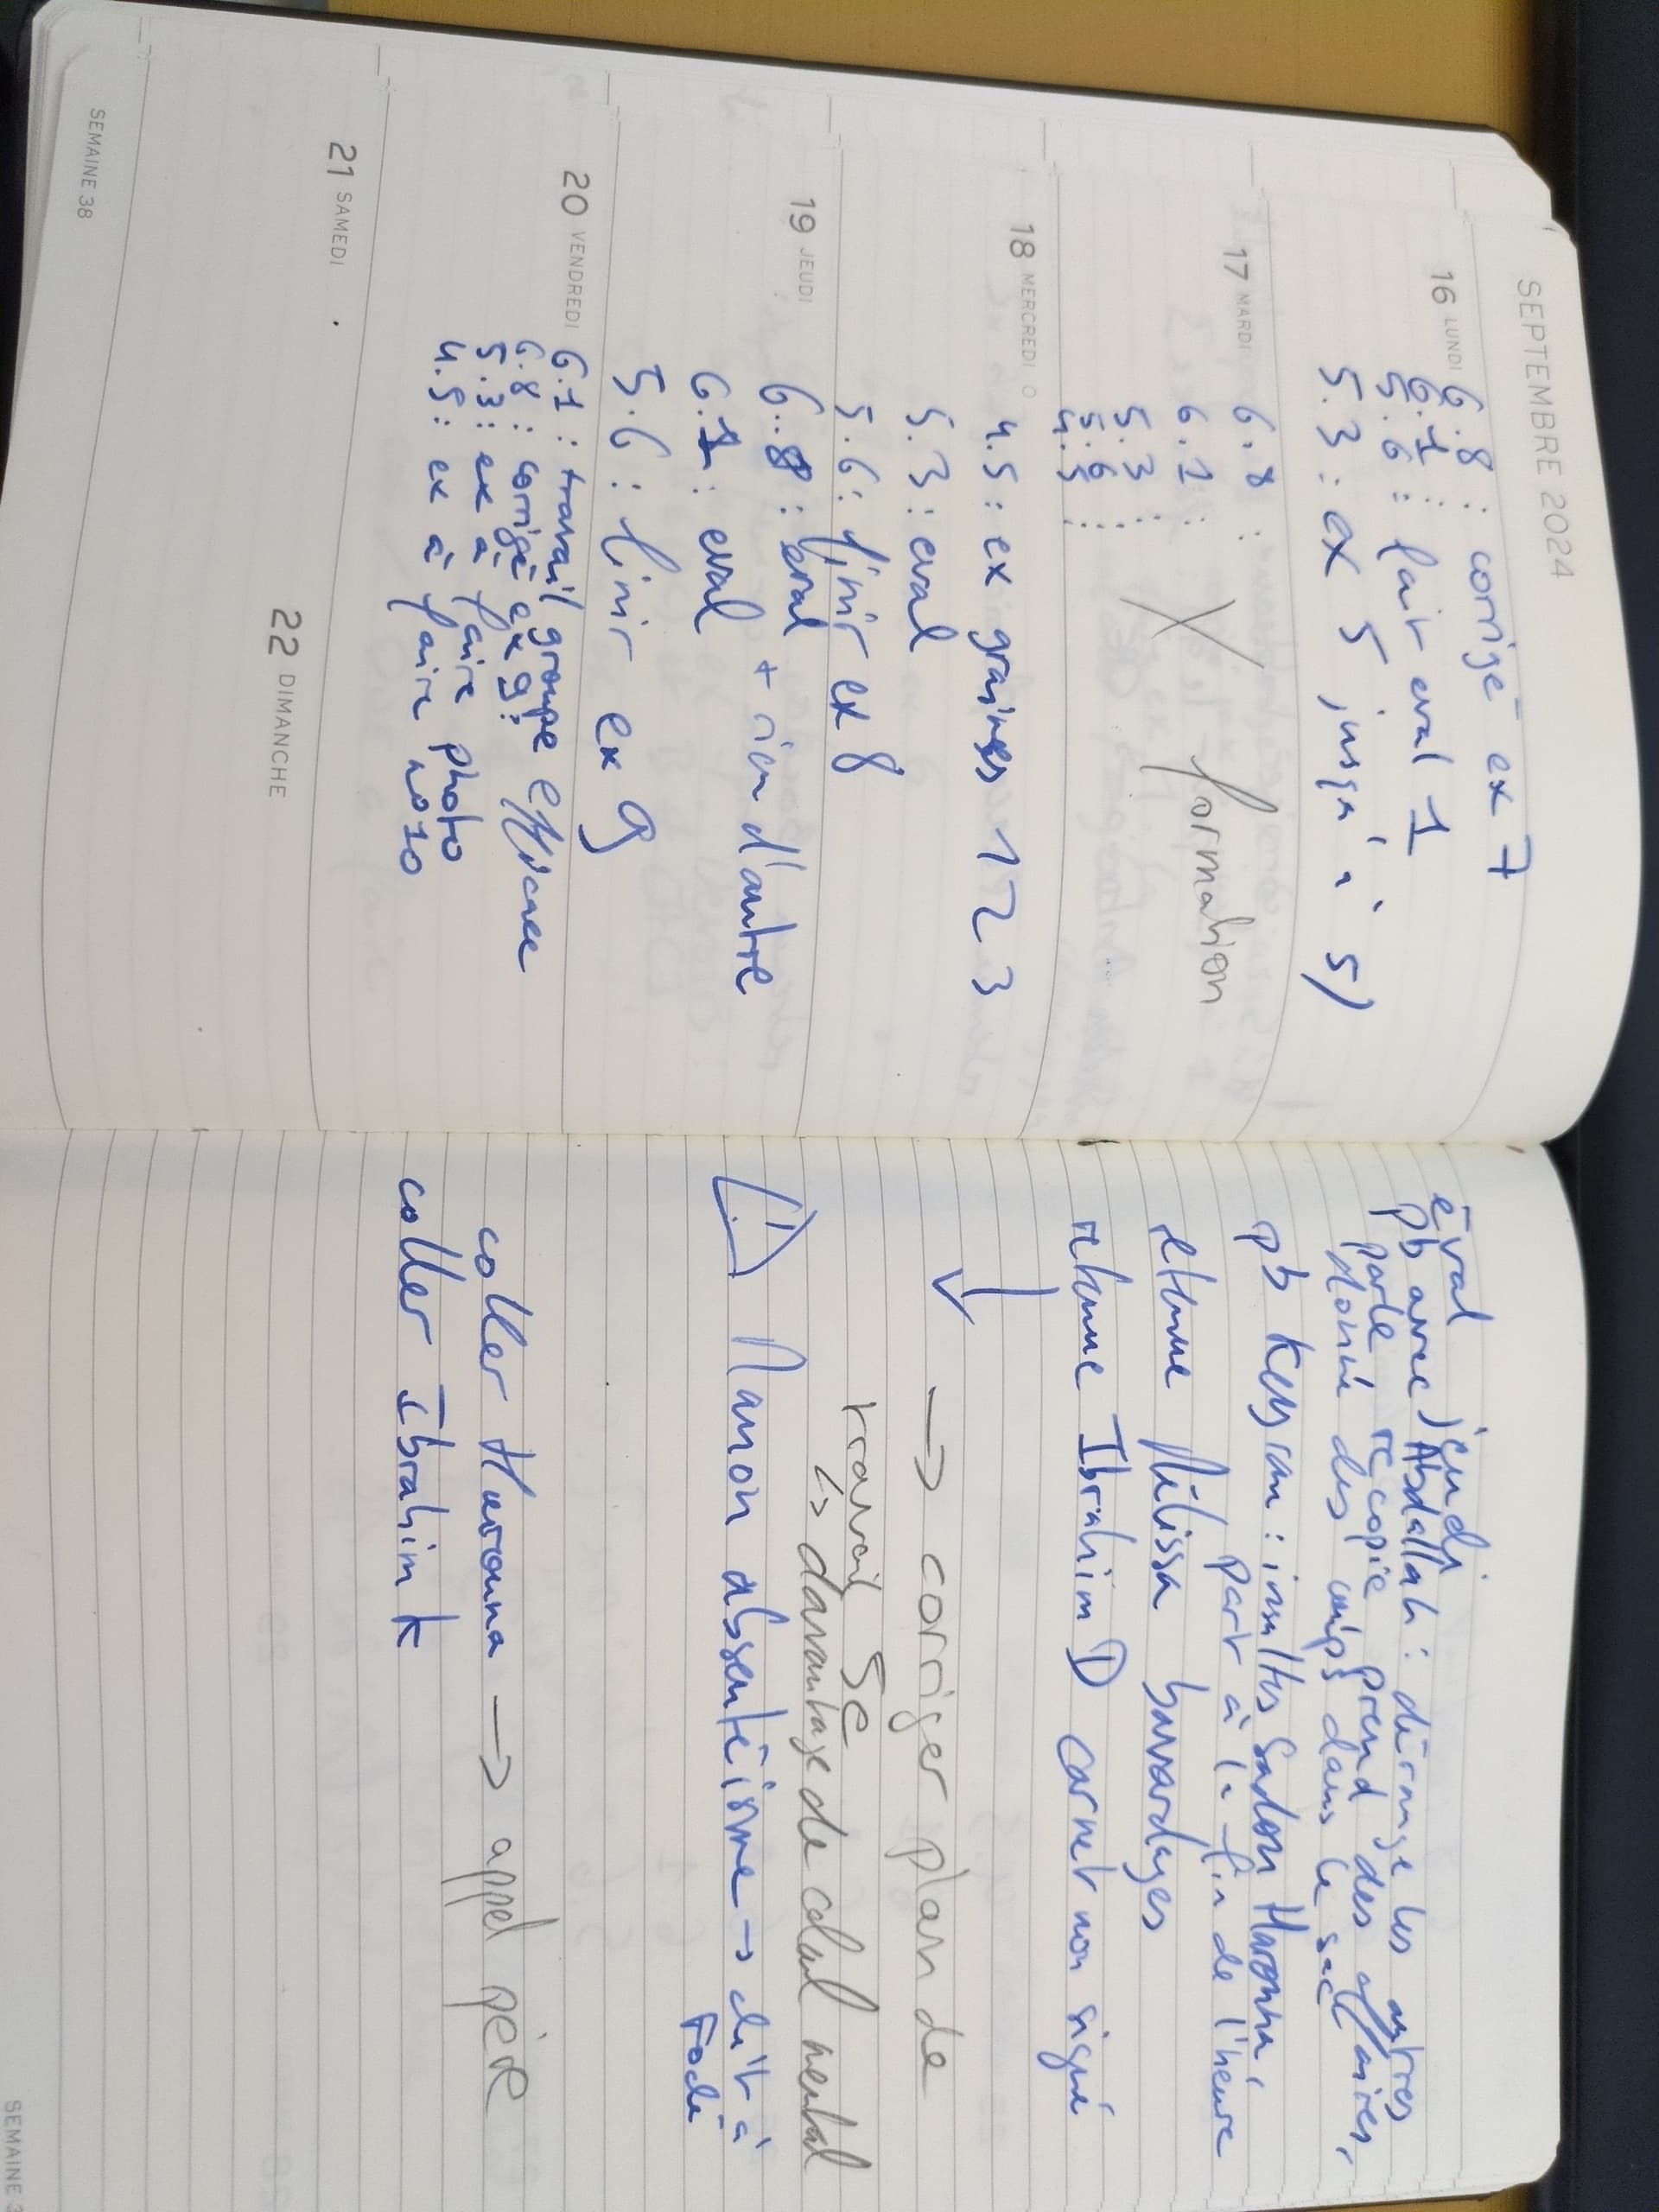 SEPTEMBRE 2024
16 LUNDI
6.8 : corrigé ex 7
6.1 :
5.6 : fait eval 1
5.3 : ex 5 jusqu'à 5)
17 MARDI
6.8 :
6.1 :
5.3 :
5.6 :
4.5 :
formation
18 MERCREDI
4.5 : ex graines 1 2 3
5.3 : eval
5.6 : finir ex 8
19 JEUDI
6.8 : eval + rien d'autre
6.1 : eval
5.6 : finir ex 9
20 VENDREDI
6.1 : travail groupe efficace
6.8 : corrigé ex 9
5.3 : ex à faire photo
4.5 : ex à faire no10
21 SAMEDI
22 DIMANCHE
SEMAINE 38
éval jeudi
pb avec Abdallah : dérange les autres
parle recopie prend des affaires,
donne des coups dans le sac
pb Keysan : insultes Harouna,
part à la fin de l'heure
retenue Mélissa bavardages
retenue Ibrahim D carnet non signé
→ corriger plan de
travail 5e
↳ davantage de calcul mental
Manon absentéisme → dit à
Fodé
coller Harouna → appel père
coller Ibrahim K
SEMAINE 3